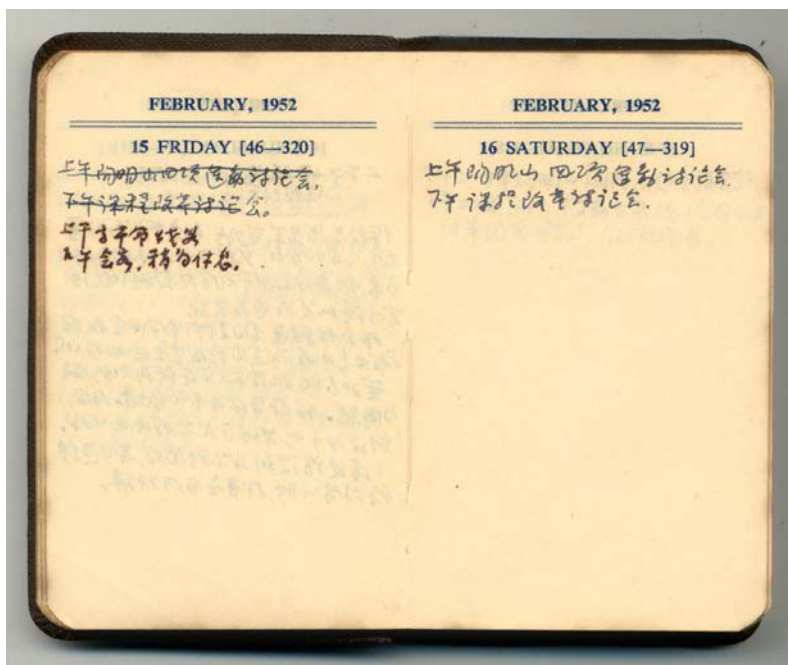 FEBRUARY, 1952
15 FRIDAY [46—320]
上午阳明山四项运动讨论会.
下午课程改革讨论会。
上午
下午会客,稍为休息.
FEBRUARY, 1952
16 SATURDAY [47—319]
上午阳明山四项运动讨论会
下午课程改革讨论会.